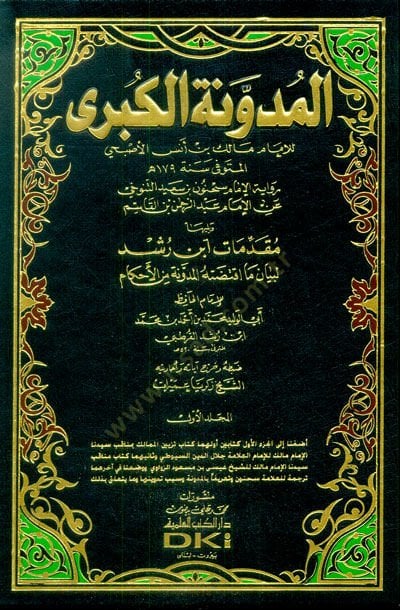 المدونة الكبرى
للإمام مالك بن أنس الأصبحي
المتوفى سنة ١٧٩هـ
رواية الإمام سحنون بن سعيد التنوخي
عن الإمام عبد الرحمن بن القاسم
ويليها
مقدمات ابن رشد
لبيان ما اقتضته المدونة من الأحكام
للإمام الحافظ
أبي الوليد محمد بن أحمد بن محمد
ابن رشد القرطبي
ضبطه وخرج آياته وأحاديثه
الشيخ زكريا عميرات
المجلد الأول
أضفنا إلى الجزء الأول كتابين أولهما كتاب تزيين الممالك بمناقب سيدنا
الإمام مالك للإمام العلامة جلال الدين السيوطي وثانيهما كتاب مناقب
سيدنا الإمام مالك للشيخ عيسى بن مسعود الزواوي ووضعنا في آخرهما
ترجمة للعلامة سحنون وتعريفاً بالمدونة وسبب تدوينها وما يتعلق بذلك
منشورات
محمد علي بيضون
دار الكتب العلمية
DKi
بيروت - لبنان